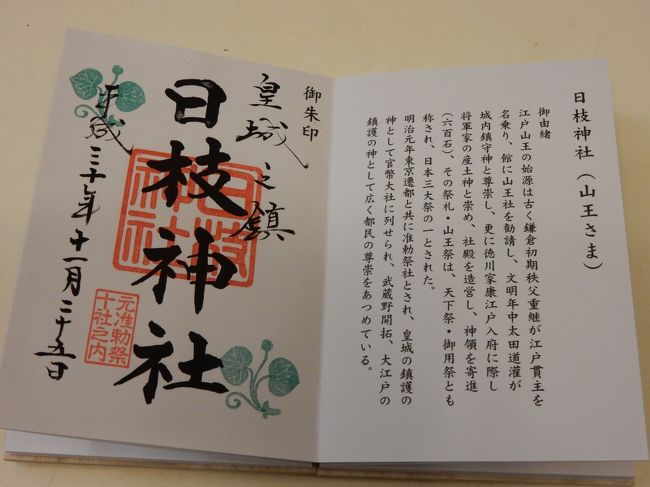 日枝神社(山王さま)
御由緒
江戸山王の始源は古く鎌倉初期秩父重継が江戸貫主を
名乗り、館に山王社を勧請し、文明年中太田道灌が
城内鎮守神と尊崇し、更に徳川家康江戸入府に際し
将軍家の産土神と崇め、社殿を造営し、神領を寄進
(六百石)、その祭礼・山王祭は、天下祭・御用祭とも
称され、日本三大祭の一とされた。
明治元年東京遷都と共に准勅祭社とされ、皇城の鎮護の
神として官幣大社に列せられ、武蔵野開拓、大江戸の
鎮護の神として広く都民の尊崇をあつめている。
御朱印
皇城之鎮
日枝神社
日枝神社
元准勅祭
十社之内
平成三十年十一月二十五日